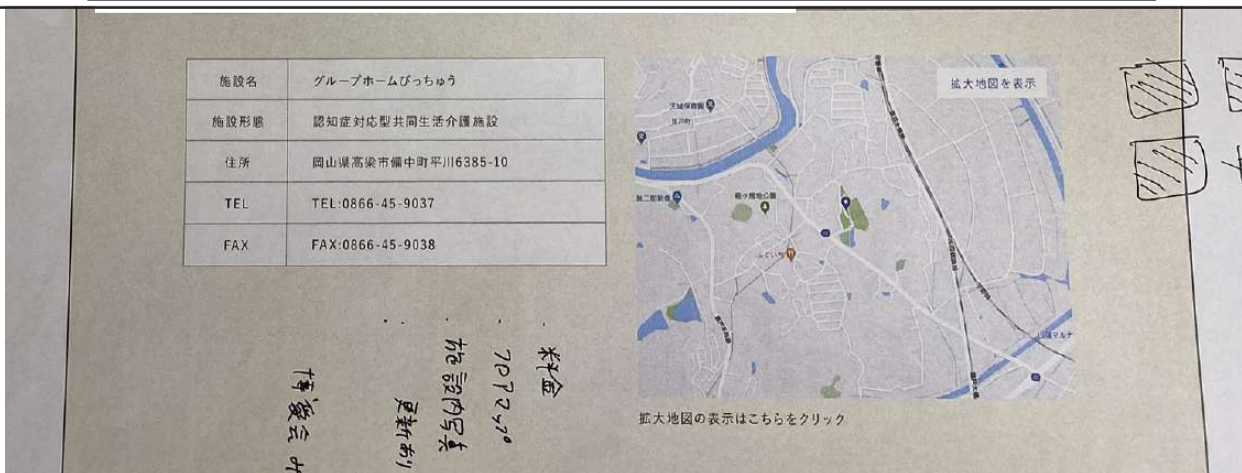 施設名 グループホームびっちゅう
施設形態 認知症対応型共同生活介護施設
住所 岡山県高梁市備中町平川6385-10
TEL TEL:0866-45-9037
FAX FAX:0866-45-9038
拡大地図を表示
天城保育園
ふぐい
拡大地図の表示はこちらをクリック
・料金
・フロアマップ
・施設内写真
更新あり
博愛会